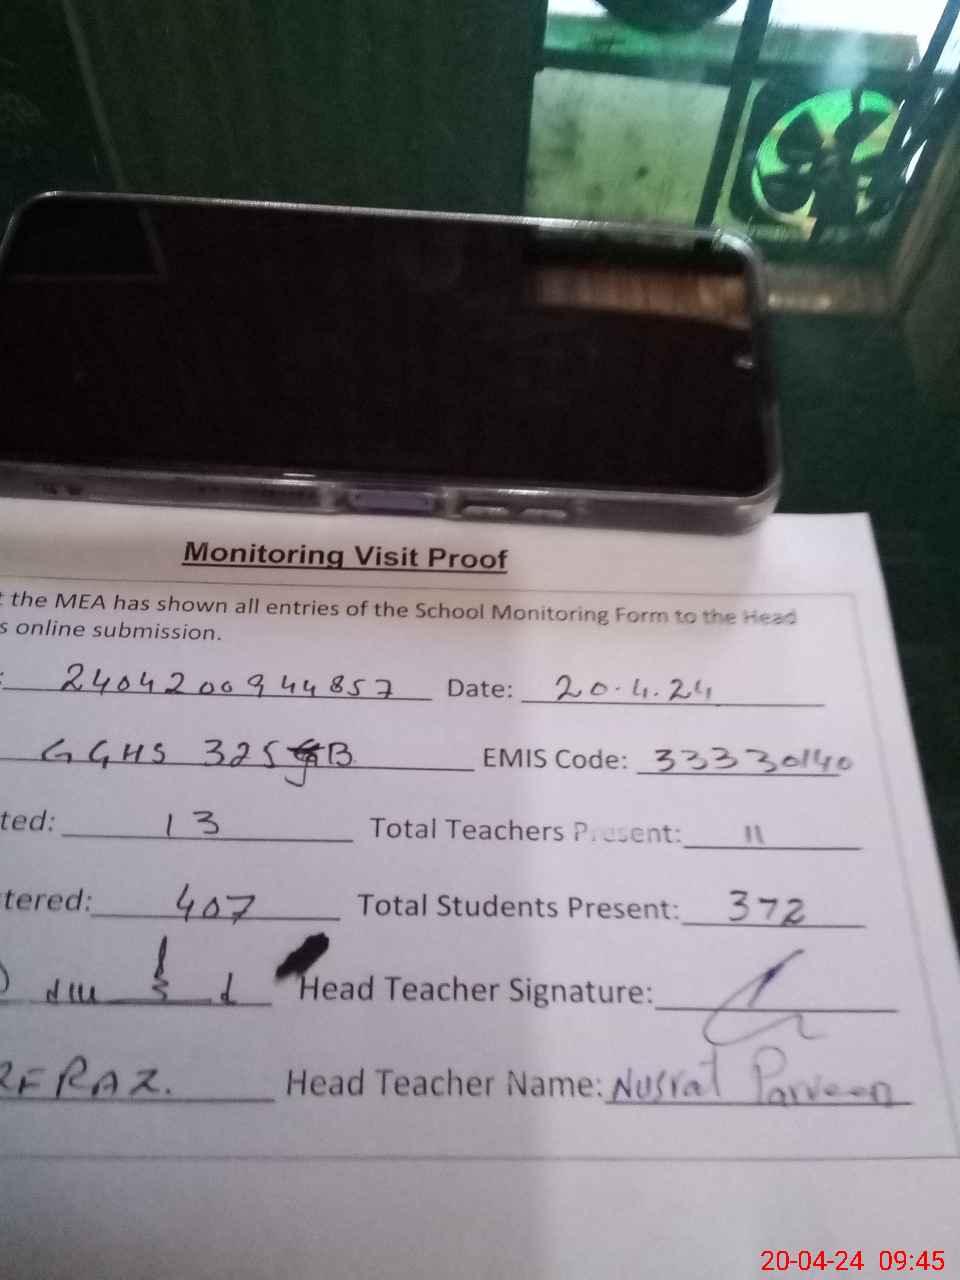 Monitoring Visit Proof
t the MEA has shown all entries of the School Monitoring Form to the Head
s online submission.
: 2404200944857 Date: 20.4.24
GGHS 325 GB EMIS Code: 33330140
ted: 13 Total Teachers Present: 11
tered: 407 Total Students Present: 372
Head Teacher Signature:
RFRAZ. Head Teacher Name: Nusrat Parveen
20-04-24 09:45